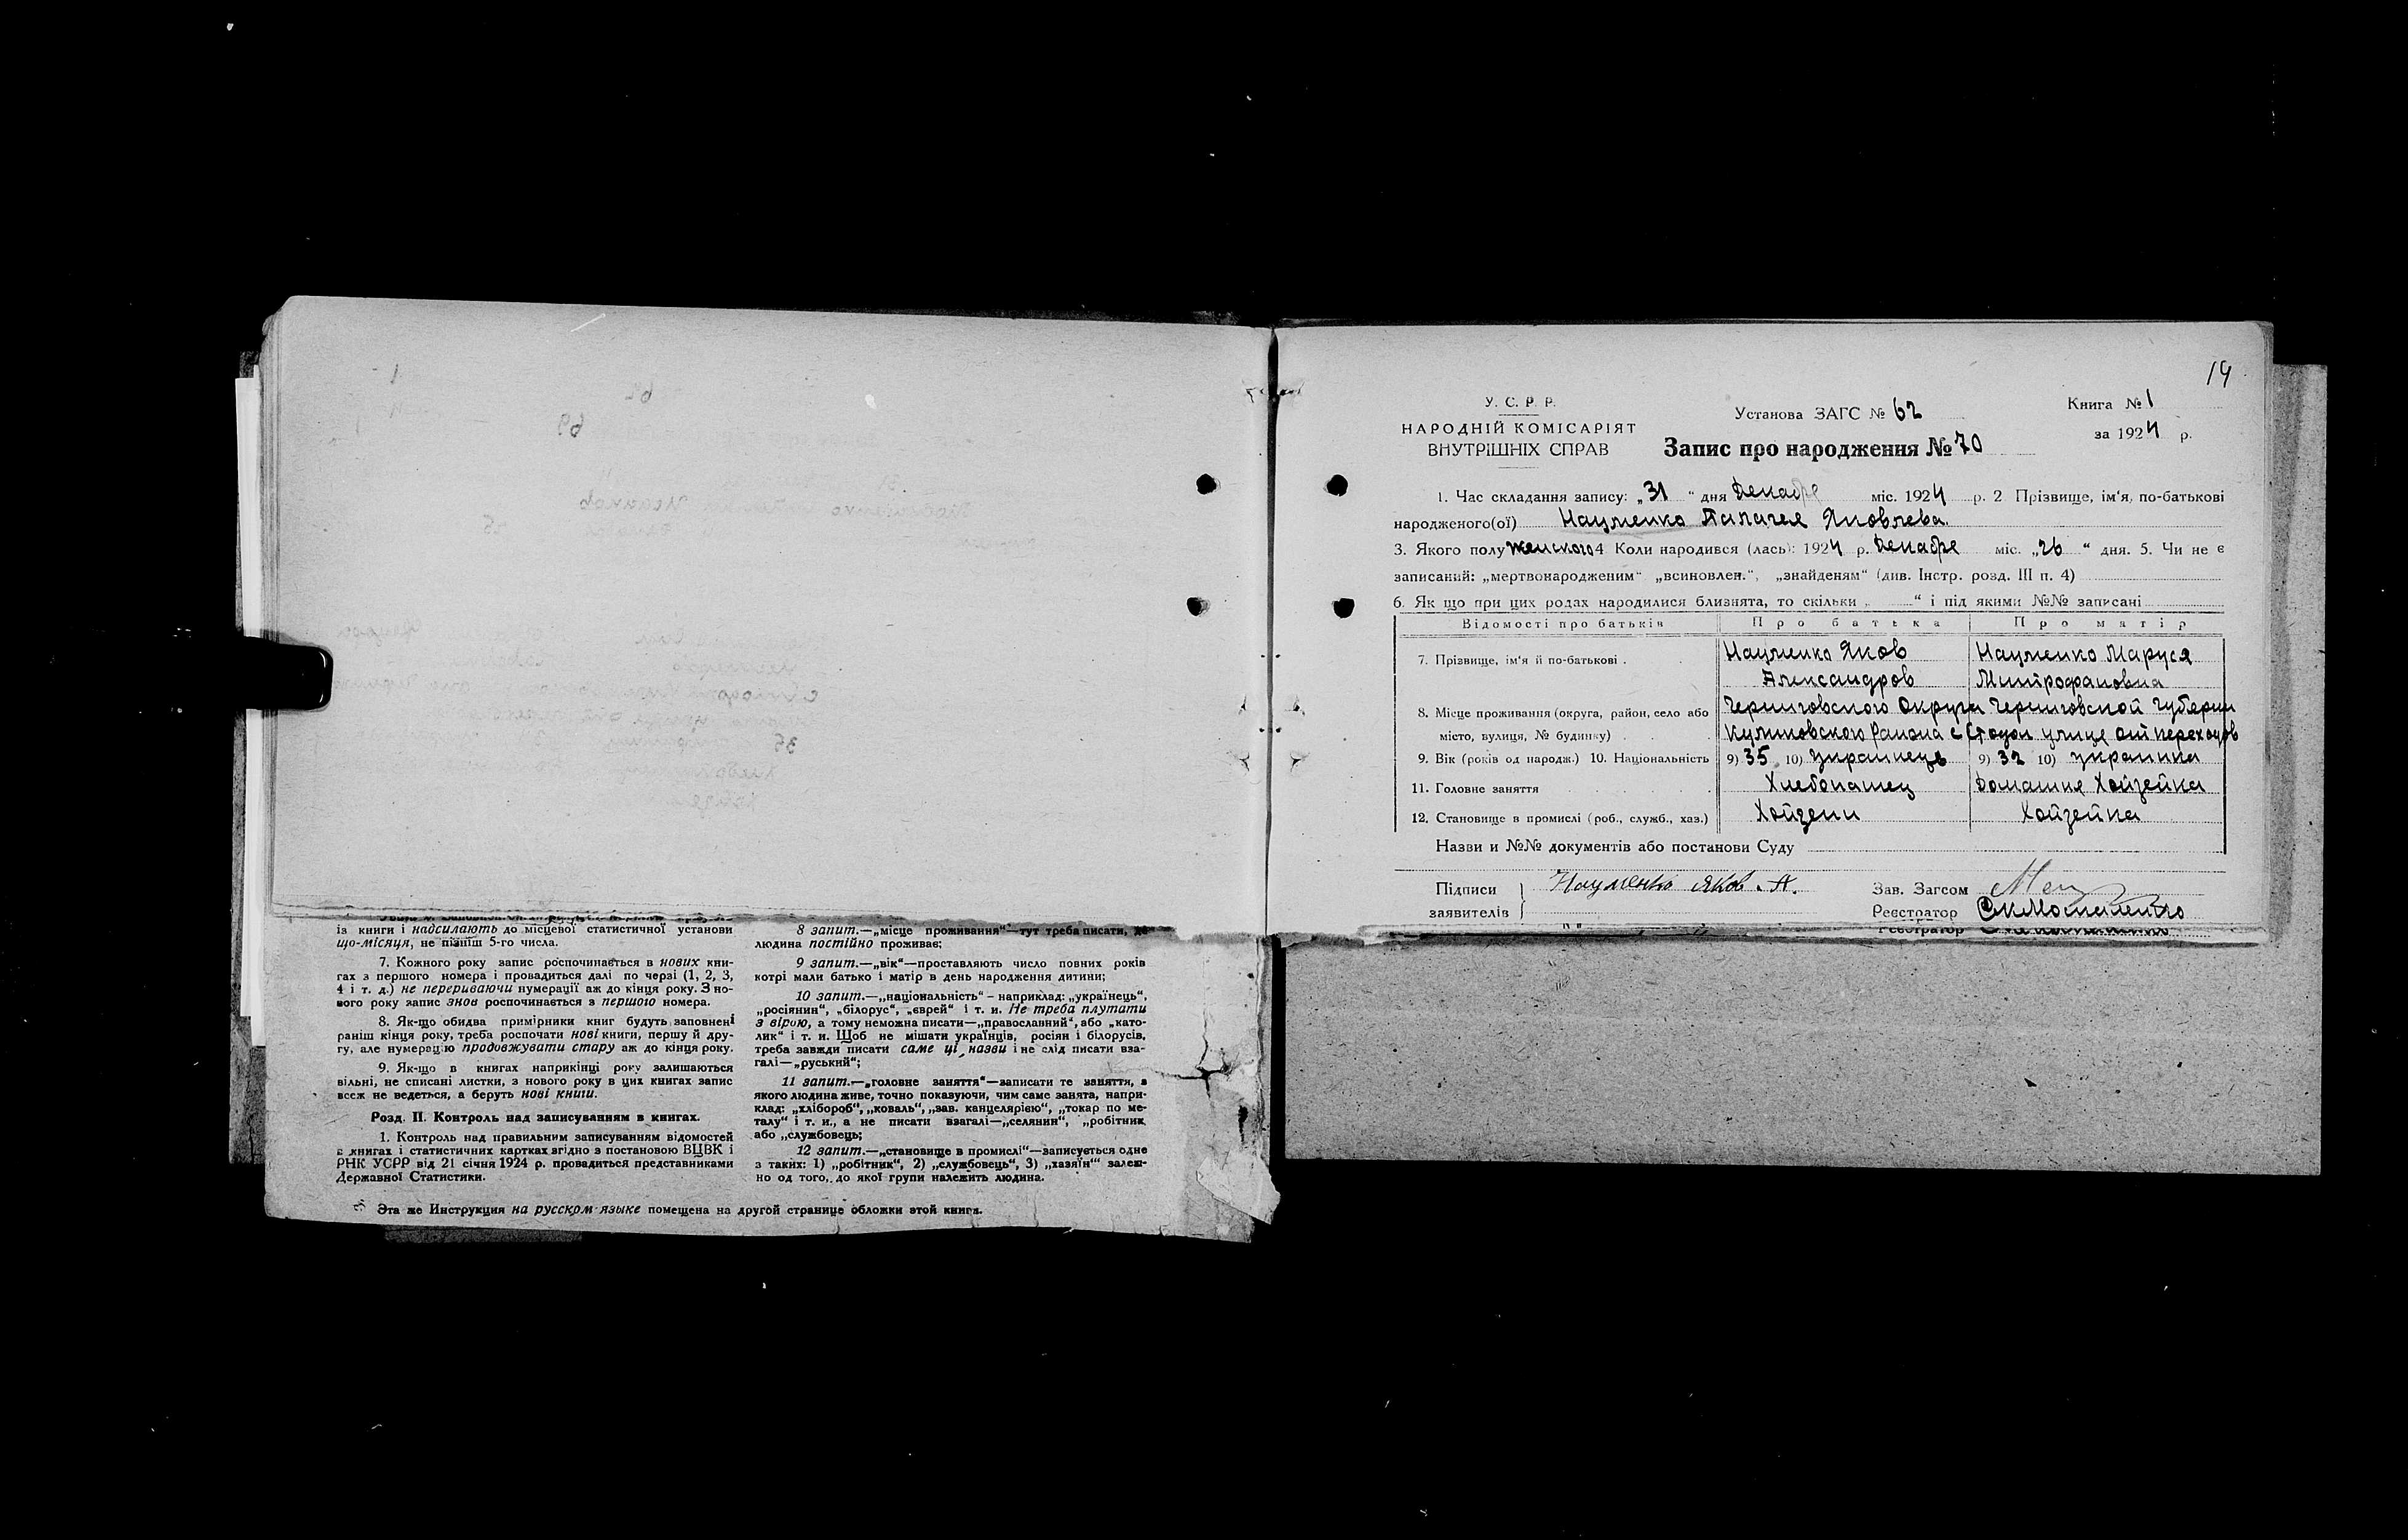 із книги і надсилають до місцевої статистичної установи
що-місяця, не пізніш 5-го числа.
7. Кожного року запис роспочинається в нових кни-
гах з першого номера і провадиться далі по черзі (1, 2, 3,
4 і т. д.) не перериваючи нумерації аж до кінця року. З но-
вого року запис знов роспочинається з першого номера.
8. Як-що обидва примірники книг будуть заповнені
раніш кінця року, треба роспочати нові книги, першу й дру-
гу, але нумерацію продовжувати стару аж до кінця року.
9. Як-що в книгах наприкінці року залишаються
вільні, не списані листки, з нового року в цих книгах запис
всеж не ведеться, а беруть нові книги.
Розд. II. Контроль над записуванням в книгах.
1. Контроль над правильним записуванням відомостей
в книгах і статистичних картках згідно з постановою ВЦВК і
РНК УСРР від 21 січня 1924 р. провадиться представниками
Державної Статистики.
8 запит.—„місце проживання“—тут треба писати, де
людина постійно проживає;
9 запит.—„вік“—проставляють число повних років
котрі мали батько і матір в день народження дитини;
10 запит.—„національність“ – наприклад: „українець“,
„росіянин“, „білорус“, „єврей“ і т. и. Не треба плутати
з вірою, а тому неможна писати—„православний“, або „като-
лик“ і т. и. Щоб не мішати українців, росіян і білорусів,
треба завжди писати саме ці назви і не слід писати вза-
галі—„руський“;
11 запит.—„головне заняття“—записати те заняття, з
якого людина живе, точно показуючи, чим саме занята, напри-
клад: „хлібороб“, „коваль“, „зав. канцелярією“, „токар по ме-
талу“ і т. и., а не писати взагалі—„селянин“, „робітник
або „службовець;
12 запит.—„становище в промислі“—записується одне
з таких: 1) „робітник“, 2) „службовець“, 3) „хазяїн“ залеж-
но од того, до якої групи належить людина.
Эта же Инструкция на русском языке помещена на другой странице обложки этой книги.
19
У. С. Р. Р.
НАРОДНІЙ КОМІСАРІЯТ
ВНУТРІШНІХ СПРАВ
Установа ЗАГС № 62
Запис про народження № 70
Книга № 1
за 1924 р.
1. Час складання запису: „31“ дня Декабре міс. 1924 р. 2 Прізвище, ім‘я, по-батькові
народженого(ої) Науменко Палагея Яковлева.
3. Якого полу Женского 4 Коли народився (лась): 1924 р. Декабре міс. „26“ дня. 5. Чи не є
записаний: „мертвонародженим“ „всиновлен.“, „знайденям“ (див. Інстр. розд. III п. 4)
6. Як що при цих родах народилися близнята, то скільки „ “ і під якими №№ записані
Відомості про батьків Про батька Про матір
7. Прізвище, ім‘я й по-батькові . Науменко Яков Науменко Маруся
Александров Митрофановна
8. Місце проживання (округа, район, село або Черниговского Округа Черниговской Губернии
місто, вулиця, № будинку) Куликовского Раиона с Стодол улице
9. Вік (років од народж.) 10. Національність 9) 35 10) Украинець 9) 32 10) украинка
11. Головне заняття Хлебопашец Домашня Хойзейка
12. Становище в промислі (роб., служб., хаз.) Хойзеин Хойзейка
Назви и №№ документів або постанови Суду
Підписи Науменко Яков. А. Зав. Загсом
заявителів Реєстратор
Реєстратор